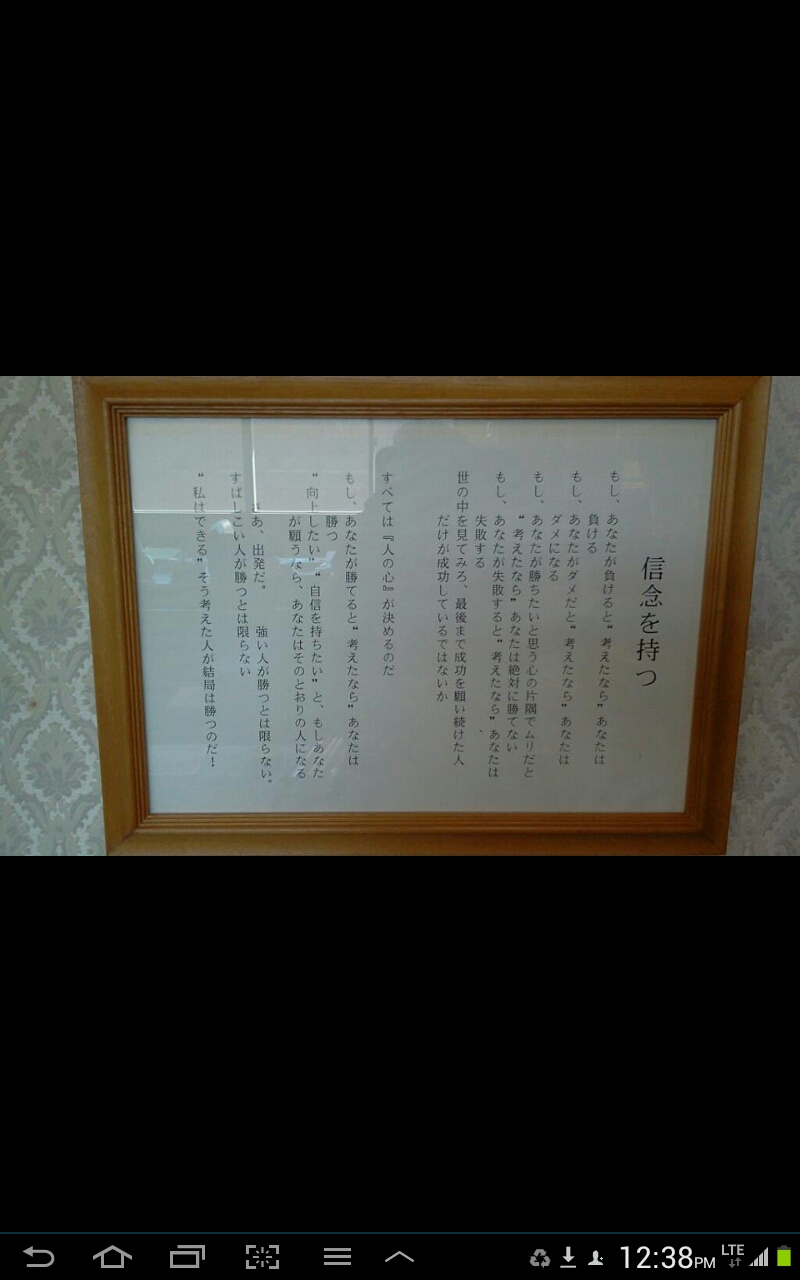 信念を持つ
もし、あなたが負けると“考えたなら”あなたは
負ける
もし、あなたがダメだと“考えたなら”あなたは
ダメになる
もし、あなたが勝ちたいと思う心の片隅でムリだと
“考えたなら”あなたは絶対に勝てない
もし、あなたが失敗すると“考えたなら”あなたは
失敗する
世の中を見てみろ、最後まで成功を願い続けた人
だけが成功しているではないか
すべては『人の心』が決めるのだ
もし、あなたが勝てると“考えたなら”あなたは
勝つ
“向上したい”“自信を持ちたい”と、もしあなた
が願うなら、あなたはそのとおりの人になる
さあ、出発だ。 強い人が勝つとは限らない。
すばしこい人が勝つとは限らない
“私はできる”そう考えた人が結局は勝つのだ！
12:38PM
LTE